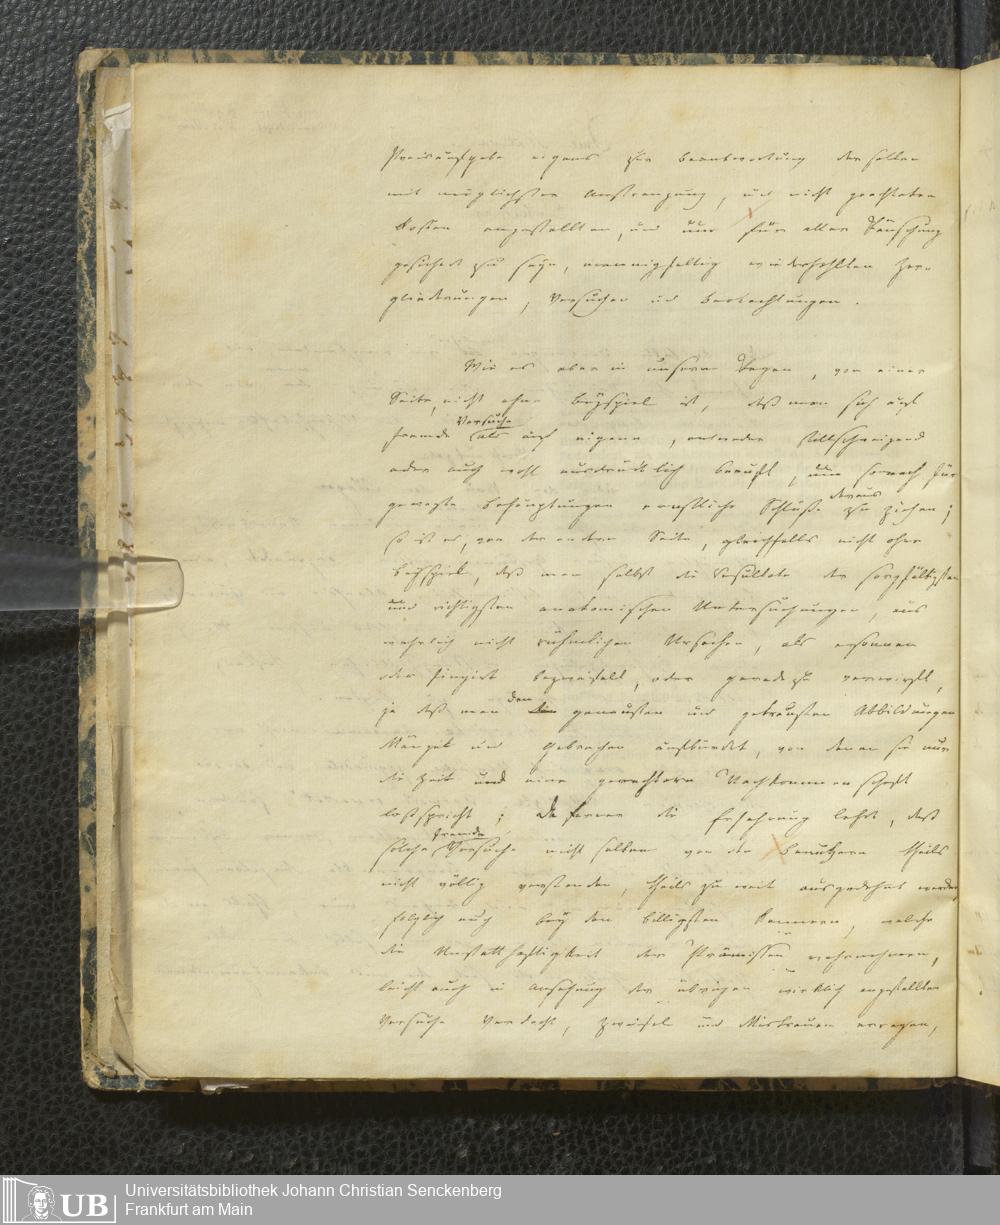 Preisaufgabe eigens zur Beantwortung derselben
mit möglichster Anstrengung, und nicht geachteten
Kosten angestellten, und um für aller Täuschung
gesichert zu seyn, mannigfaltig wiederhohlten Zer-
gliederungen, Versuchen und Beobachtungen.
Wie es aber in unseren Tagen, von einer
Seite, nicht ohne Beyspiel ist, daß man sich auf
fremde Versuche als auf eigene, entweder stillschweigend
oder auch wohl ausdrücklich beruft, um sonach für
gewagte Behauptungen ernstliche Schlüße daraus zu ziehen;
so ist es, von der andern Seite, gleichfalls nicht ohne
Beyspiel, daß man selbst die Resultate der sorgfältigsten
und richtigsten anatomischen Untersuchungen, aus
wahrlich nicht rühmlichen Ursachen, als ersonnen
oder fingirt bezweifelt, oder geradezu verwirft,
ja daß man den genausten und getreusten Abbildungen
Mängel und Gebrechen aufbürdet, von denen sie nur
die Zeit und eine gerechtere Nachkommenschaft
losspricht; Da ferner die Erfahrung lehrt, daß
solche fremde Versuche nicht selten von den Benutzern theils
nicht völlig verstanden, theils zu weit ausgedehnt werden,
folglich auch bey den billigsten Kennern, welche
die Unstatthaftigkeit der Prämissen wahrnehmen,
leicht auch in Ansehung der übrigen wirklich angestellten
Versuche Verdacht, Zweifel und Mistrauen erregen,
Universitätsbibliothek Johann Christian Senckenberg
Frankfurt am Main
UB